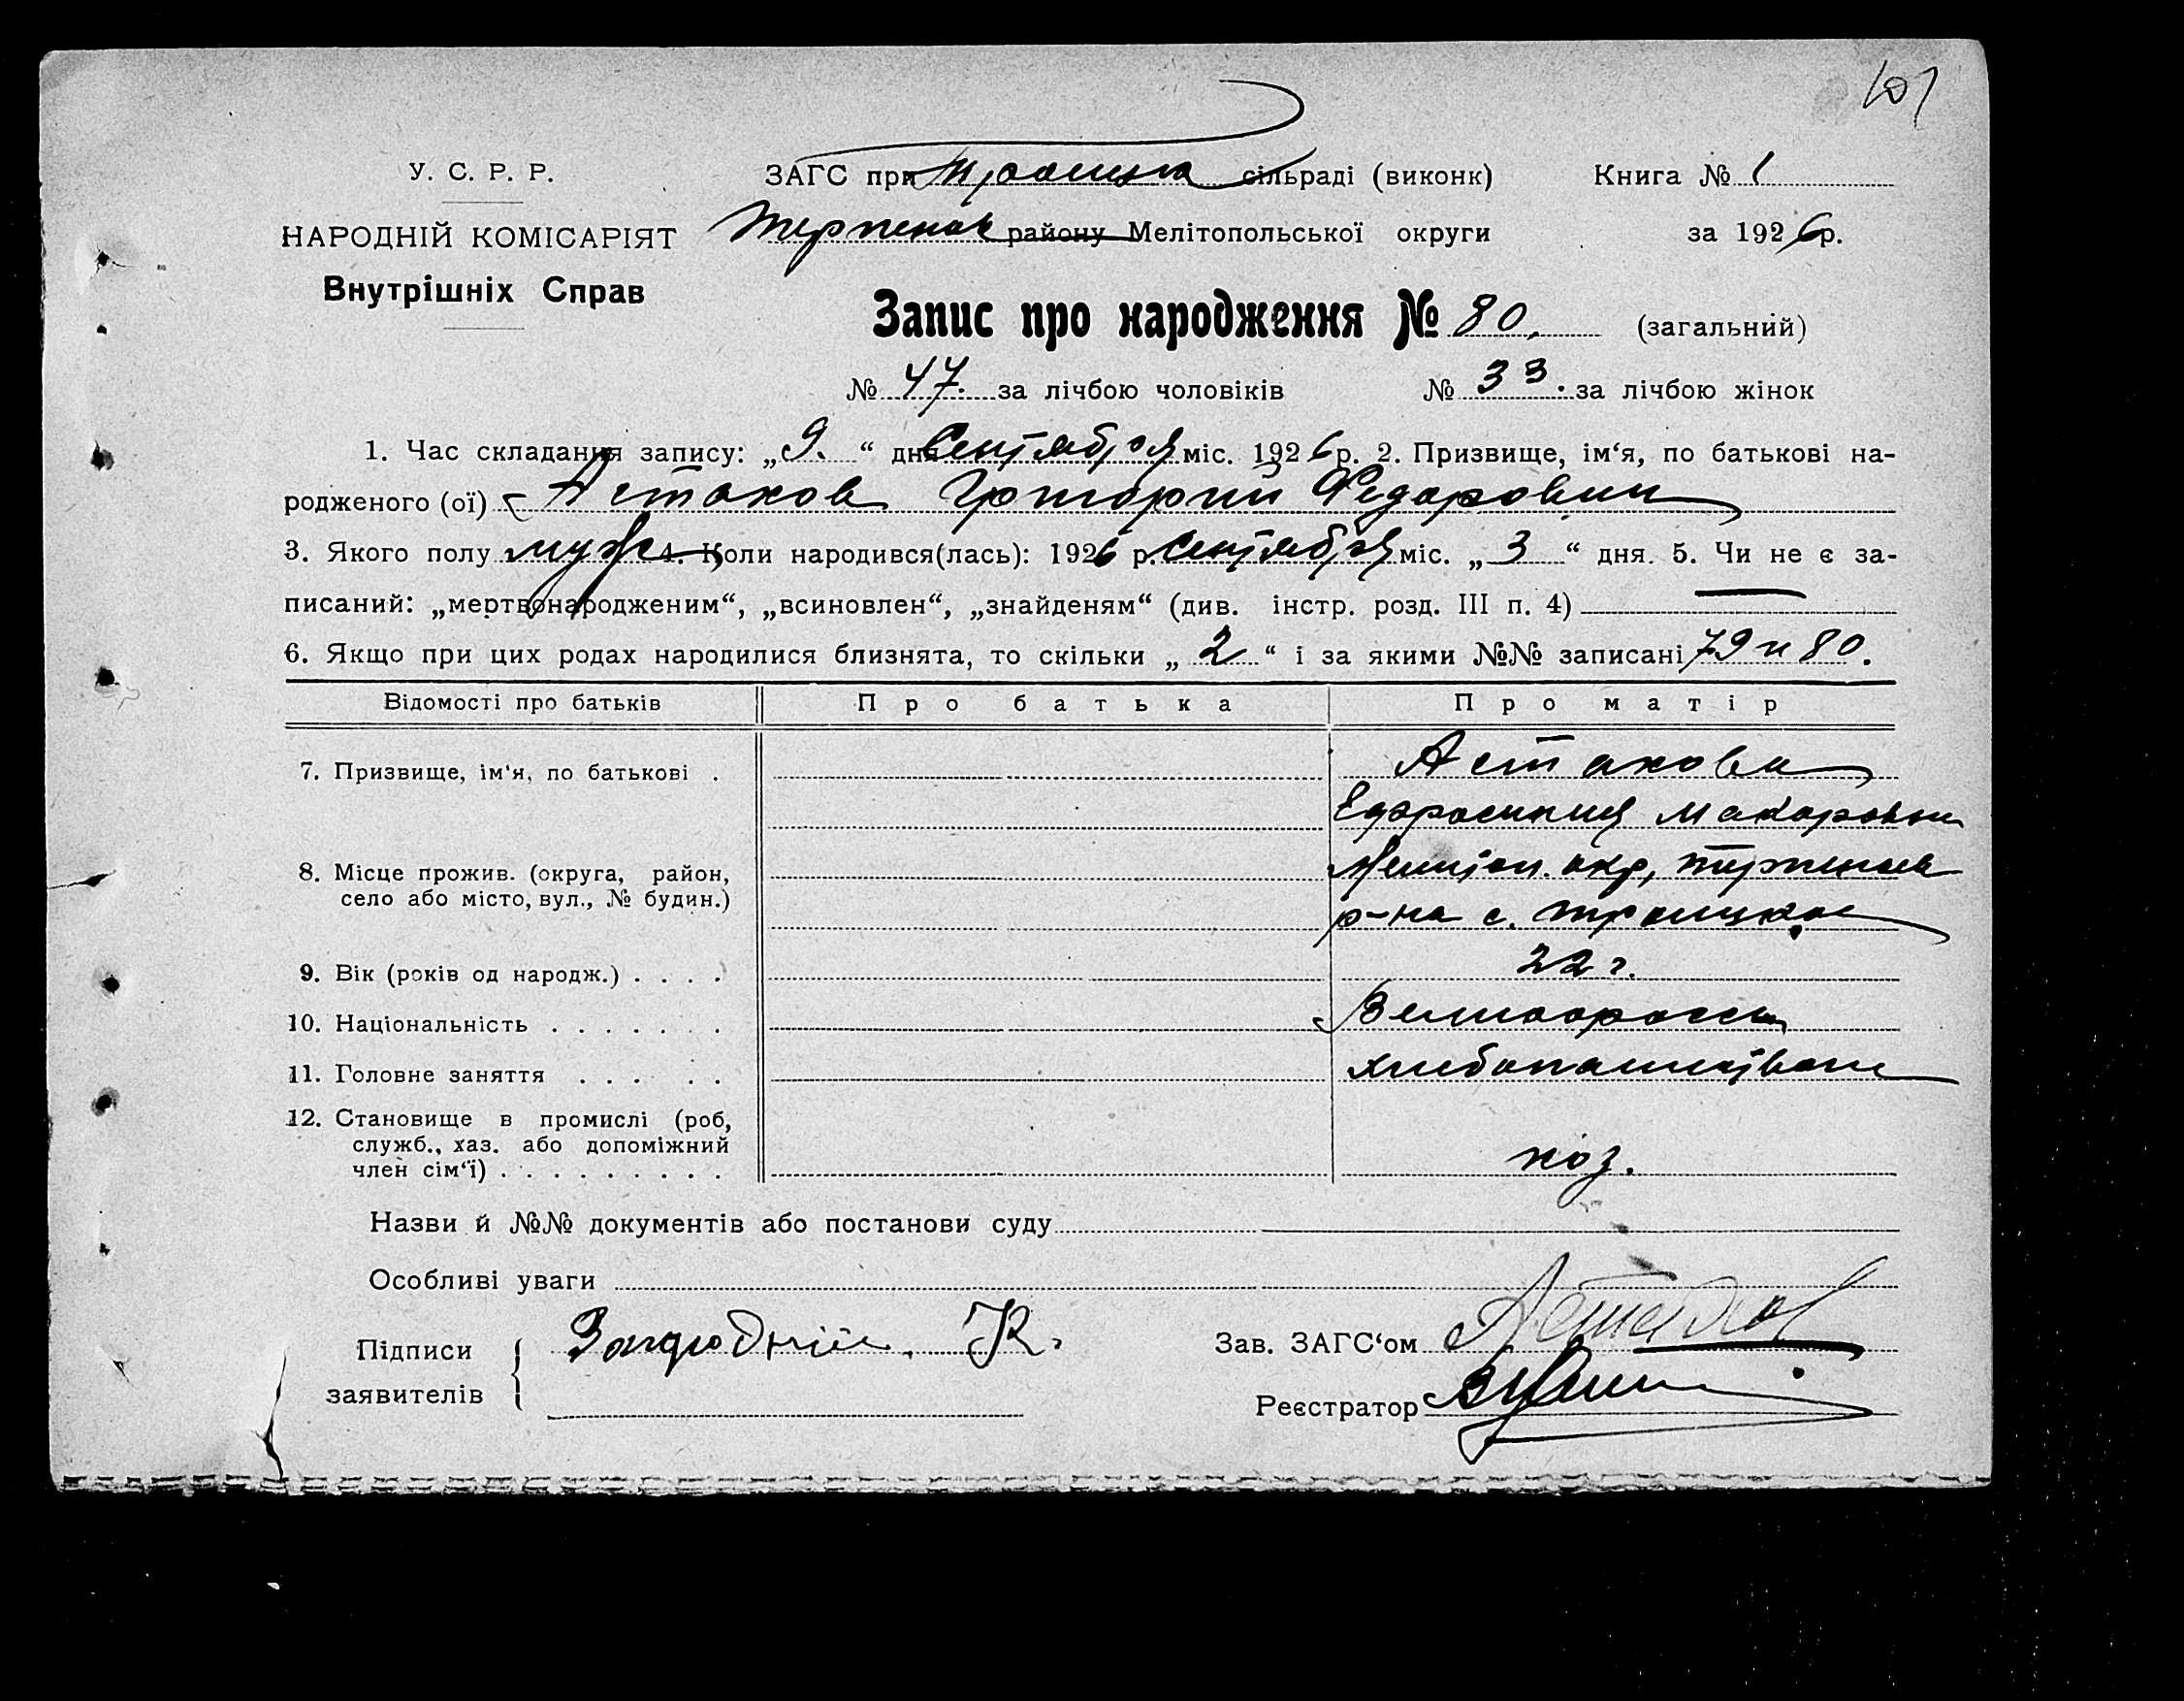 101
У. С. Р. Р.
ЗАГС при Троицка сільраді (виконк)
Книга № 1
НАРОДНІЙ КОМІСАРІЯТ
Терпенов району Мелітопольської округи
за 1926 р.
Внутрішніх Справ
Запис про народження № 80. (загальний)
№ 47. за лічбою чоловіків № 33. за лічбою жінок
1. Час складання запису: „9.“ дня Сентября міс. 1926 р. 2. Призвище, ім‘я, по батькові на-
родженого (ої) Астахов Григорий Федорович
3. Якого полу муж 4. Коли народився(лась): 1926 р. Сентября міс. „3“ дня. 5. Чи не є за-
писаний: „мертвонародженим“, „всиновлен“, „знайденям“ (див. інстр. розд. III п. 4)
6. Якщо при цих родах народилися близнята, то скільки „2“ і за якими №№ записані 79 и 80.
Відомості про батьків Про батька Про матір
7. Призвище, ім‘я, по батькові . Астахова
Ефросиния Макаровна
8. Місце прожив. (округа, район, Мелітоп. окр, терпенов
село або місто, вул., № будин.)
р-на с. Троицкое
9. Вік (років од народж.) . . . . 22 г.
10. Національність . . . . . . . Великоросс
11. Головне заняття . . . . . хлебопашество
12. Становище в промислі (роб,
служб., хаз. або допоміжний
член сім‘ї) . . . . . . . . . хоз.
Назви й №№ документів або постанови суду
Особливі уваги
Підписи К. Зав. ЗАГС‘ом Астахов
заявителів Реєстратор